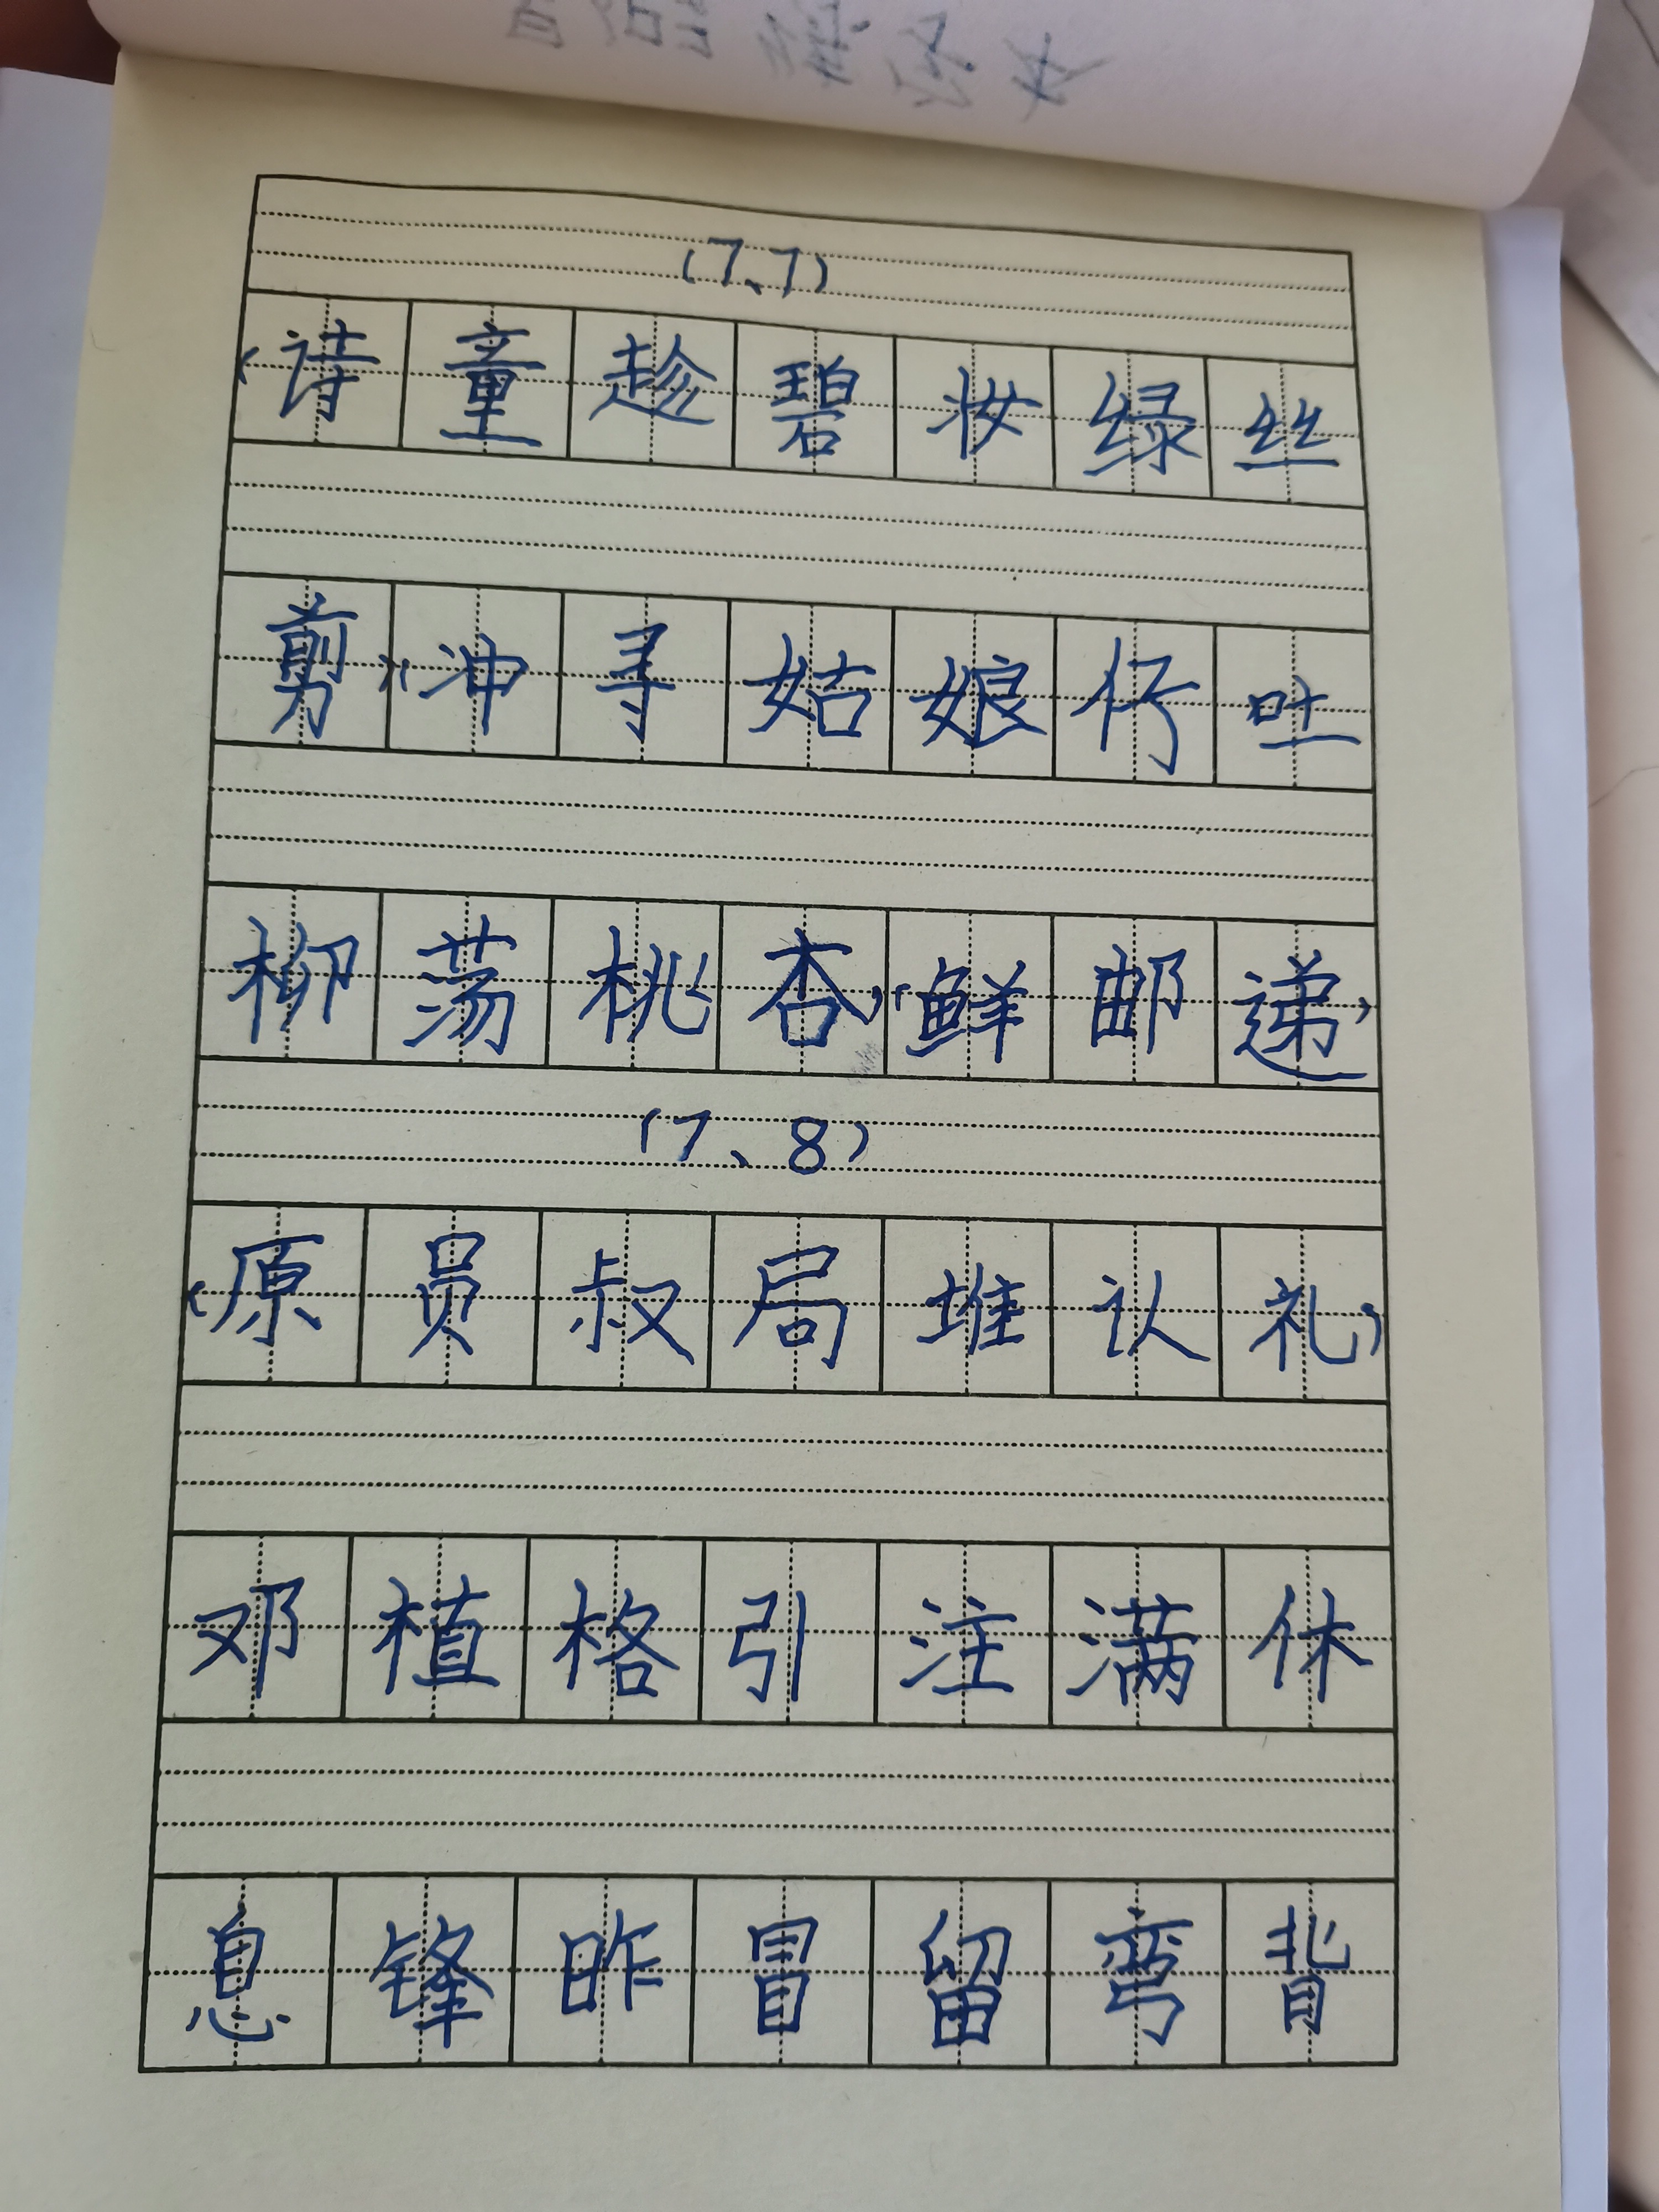 (7、7)
（诗童趁碧妆绿丝
剪）（冲寻姑娘仔吐
柳荡桃杏）（鲜邮递）
(7、8)
（原员叔局堆认礼）
邓植格引注满休
息锋昨冒留弯背